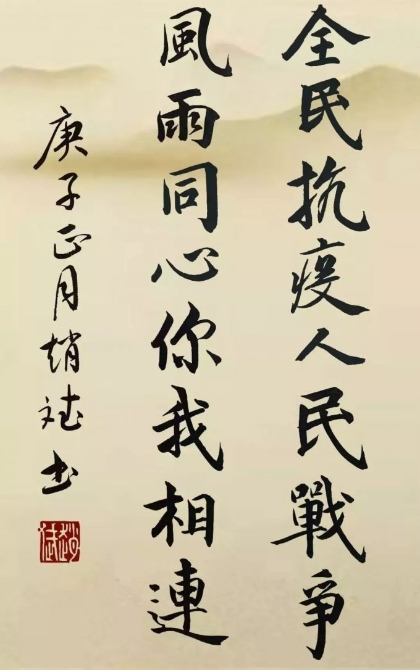 全民抗疫人民戰爭
風雨同心你我相連
庚子正月趙斌书
趙斌